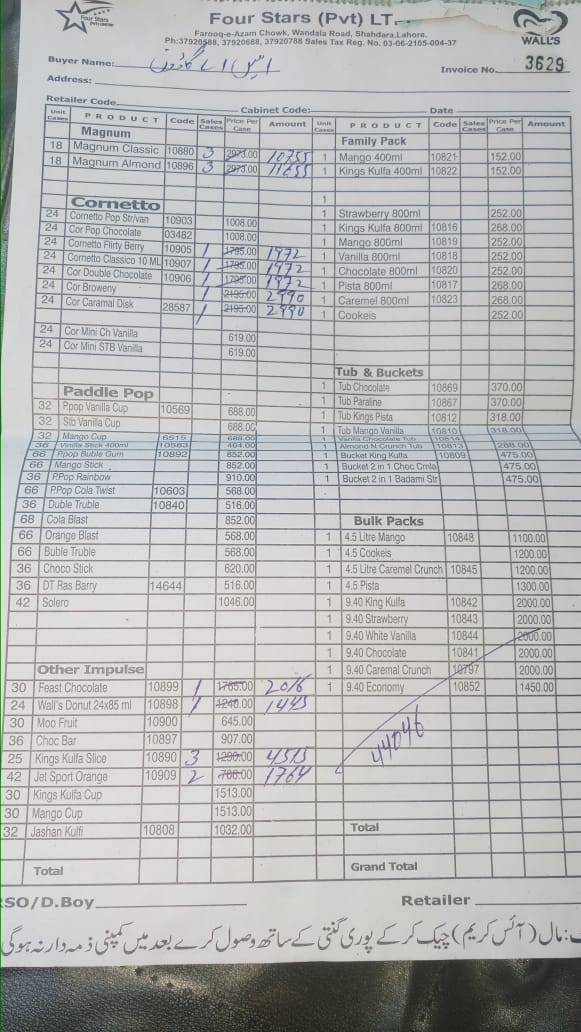 Four Stars
PVT LIMITED
Four Stars (Pvt) LT
Farooq-e-Azam Chowk, Wandala Road, Shahdara,Lahore.
Ph:37920588, 37920688, 37920788 Sales Tax Reg. No. 03-06-2105-004-37
WALL'S
Buyer Name:
Invoice No. 3629
Address:
Retailer Code. Cabinet Code: Date
Unit Cases PRODUCT Code Sales Cases Price Per Case Amount
Magnum
18 Magnum Classic 10880 3 2973.00 10755
18 Magnum Almond 10896 3 2973.00 11655
Cornetto
24 Cornetto Pop Str/van 10903 1008.00
24 Cor Pop Chocolate 03482 1008.00
24 Cornetto Flirty Berry 10905 1 1795.00 1972
24 Cornetto Classico 10 ML 10907 1 1795.00 1972
24 Cor Double Chocolate 10906 1 1795.00 1972
24 Cor Broweny 1 2195.00 2990
24 Cor Caramal Disk 28587 1 2195.00 2990
24 Cor Mini Ch Vanilla 619.00
24 Cor Mini STB Vanilla 619.00
Paddle Pop
32 P.pop Vanilla Cup 10569 688.00
32 Stb Vanilla Cup 688.00
32 Mango Cup 6515 688.00
36 Vinilla Stick 400ml 10583 464.00
66 P.pop Buble Gum 10892 852.00
66 Mango Stick 852.00
36 P.Pop Rainbow 910.00
66 P.Pop Cola Twist 10603 568.00
36 Duble Truble 10840 516.00
68 Cola Blast 852.00
66 Orange Blast 568.00
66 Buble Truble 568.00
36 Choco Stick 620.00
36 DT Ras Barry 14644 516.00
42 Solero 1046.00
Other Impulse
30 Feast Chocolate 10899 1 1765.00 2016
24 Wall's Donut 24x85 ml 10898 1 1240.00 1445
30 Moo Fruit 10900 645.00
36 Choc Bar 10897 907.00
25 Kings Kulfa Slice 10890 3 1290.00 4515
42 Jet Sport Orange 10909 2 708.00 1764
30 Kings Kulfa Cup 1513.00
30 Mango Cup 1513.00
32 Jashan Kulfi 10808 1032.00
Total
Unit Cases PRODUCT Code Sales Cases Price Per Case Amount
Family Pack
1 Mango 400ml 10821 152.00
1 Kings Kulfa 400ml 10822 152.00
1
1 Strawberry 800ml 252.00
1 Kings Kulfa 800ml 10816 268.00
1 Mango 800ml 10819 252.00
1 Vanilla 800ml 10818 252.00
1 Chocolate 800ml 10820 252.00
1 Pista 800ml 10817 268.00
1 Caremel 800ml 10823 268.00
1 Cookeis 252.00
Tub & Buckets
1 Tub Chocolate 10869 370.00
1 Tub Paraline 10867 370.00
1 Tub Kings Pista 10812 318.00
1 Tub Mango Vanilla 10810 318.00
1 Vanilla Chocolate Tub 10814
1 Almond N Crunch Tub 10813 288.00
1 Bucket King Kulfa 10809 475.00
1 Bucket 2 in 1 Choc Cmla 475.00
1 Bucket 2 in 1 Badami Str 475.00
Bulk Packs
1 4.5 Litre Mango 10848 1100.00
1 4.5 Cookeis 1200.00
1 4.5 Litre Caremel Crunch 10845 1200.00
1 4.5 Pista 1300.00
1 9.40 King Kulfa 10842 2000.00
1 9.40 Strawberry 10843 2000.00
1 9.40 White Vanilla 10844 2000.00
1 9.40 Chocolate 10841 2000.00
1 9.40 Caremal Crunch 10797 2000.00
1 9.40 Economy 10852 1450.00
44046
Total
Grand Total
SO/D.Boy Retailer
مال (آئس کریم) چیک کر کے پوری گنتی کے ساتھ وصول کرے بعد میں کمپنی ذمہ دار نہ ہوگی